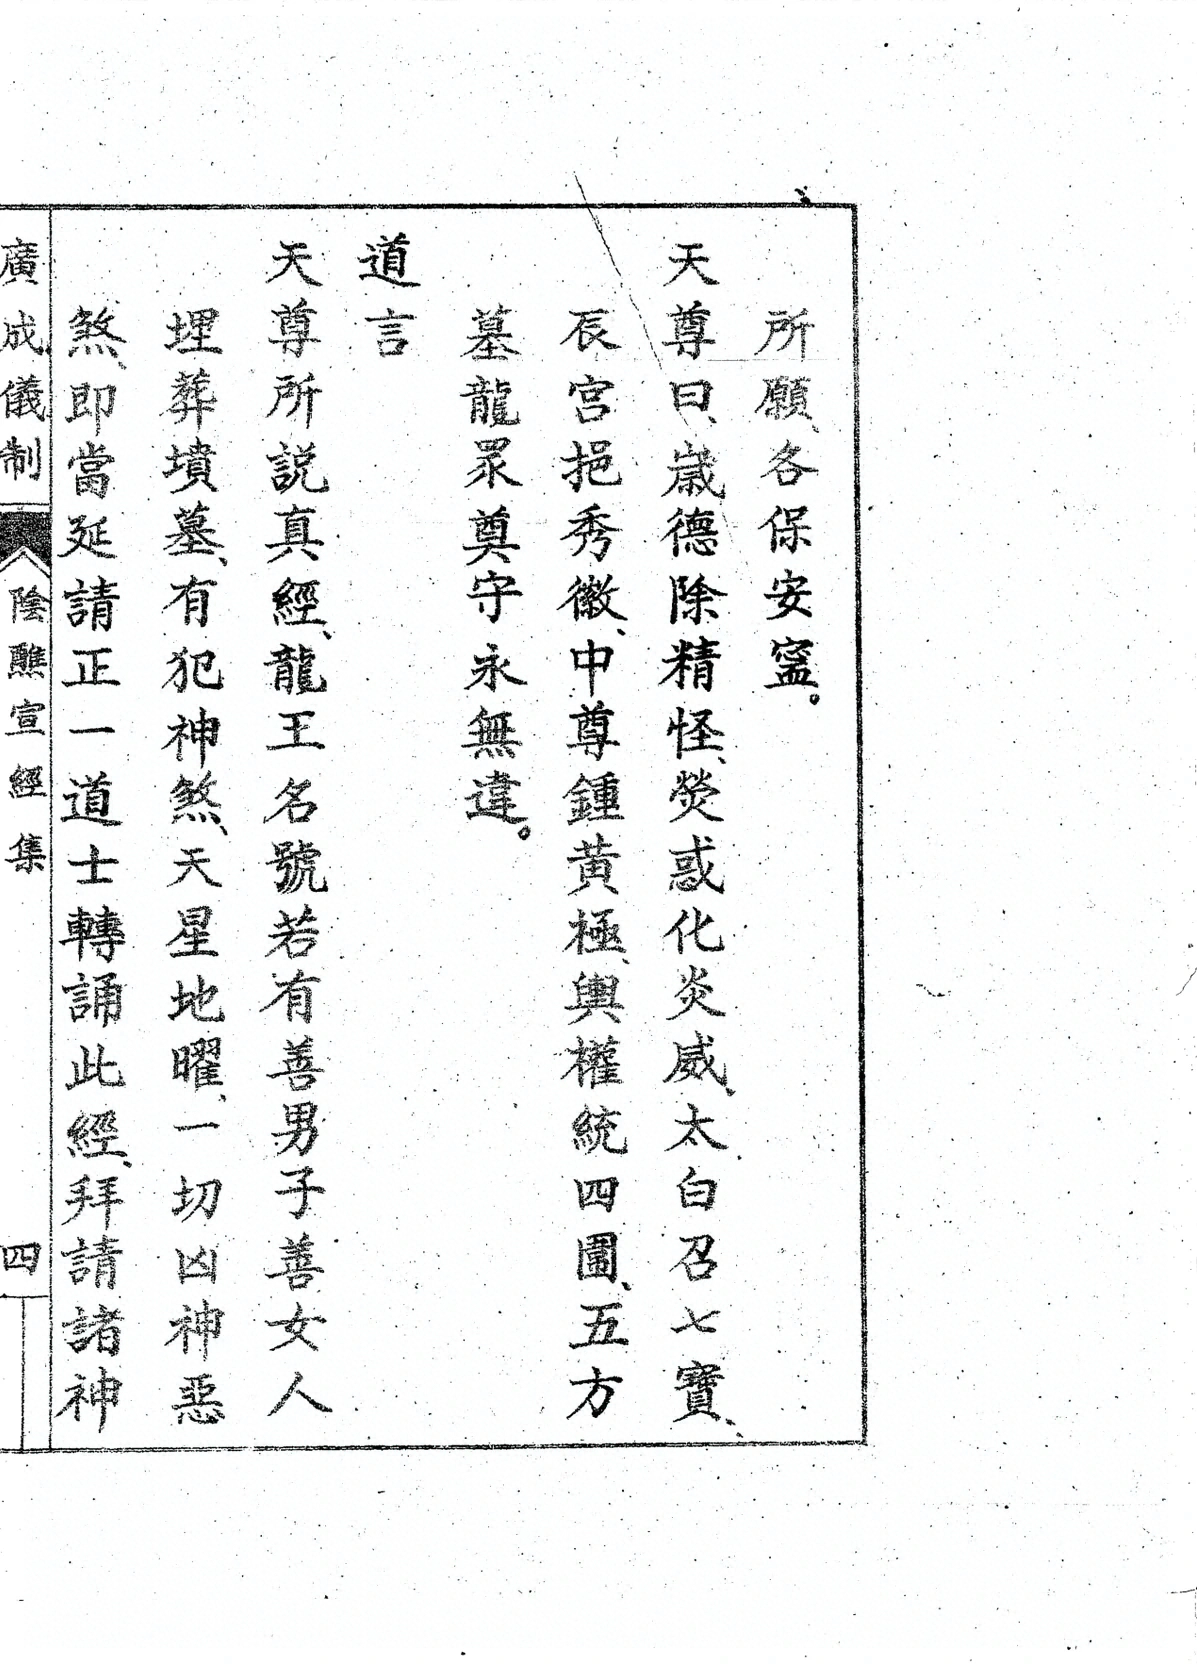 所願、各保安寍。
天尊曰、嵗德除精怪、熒惑化炎威、太白召七寶、
辰宮挹秀徽、中尊鍾黃極、輿權統四圍、五方
墓龍眾奠守永無違。
道言
天尊所説真經、龍王名號若有善男子善女人
埋葬墳墓、有犯神煞、天星地曜、一切凶神惡
煞、即當延請正一道士轉誦此經、拜請諸神
廣成儀制 陰醮宣經集 四